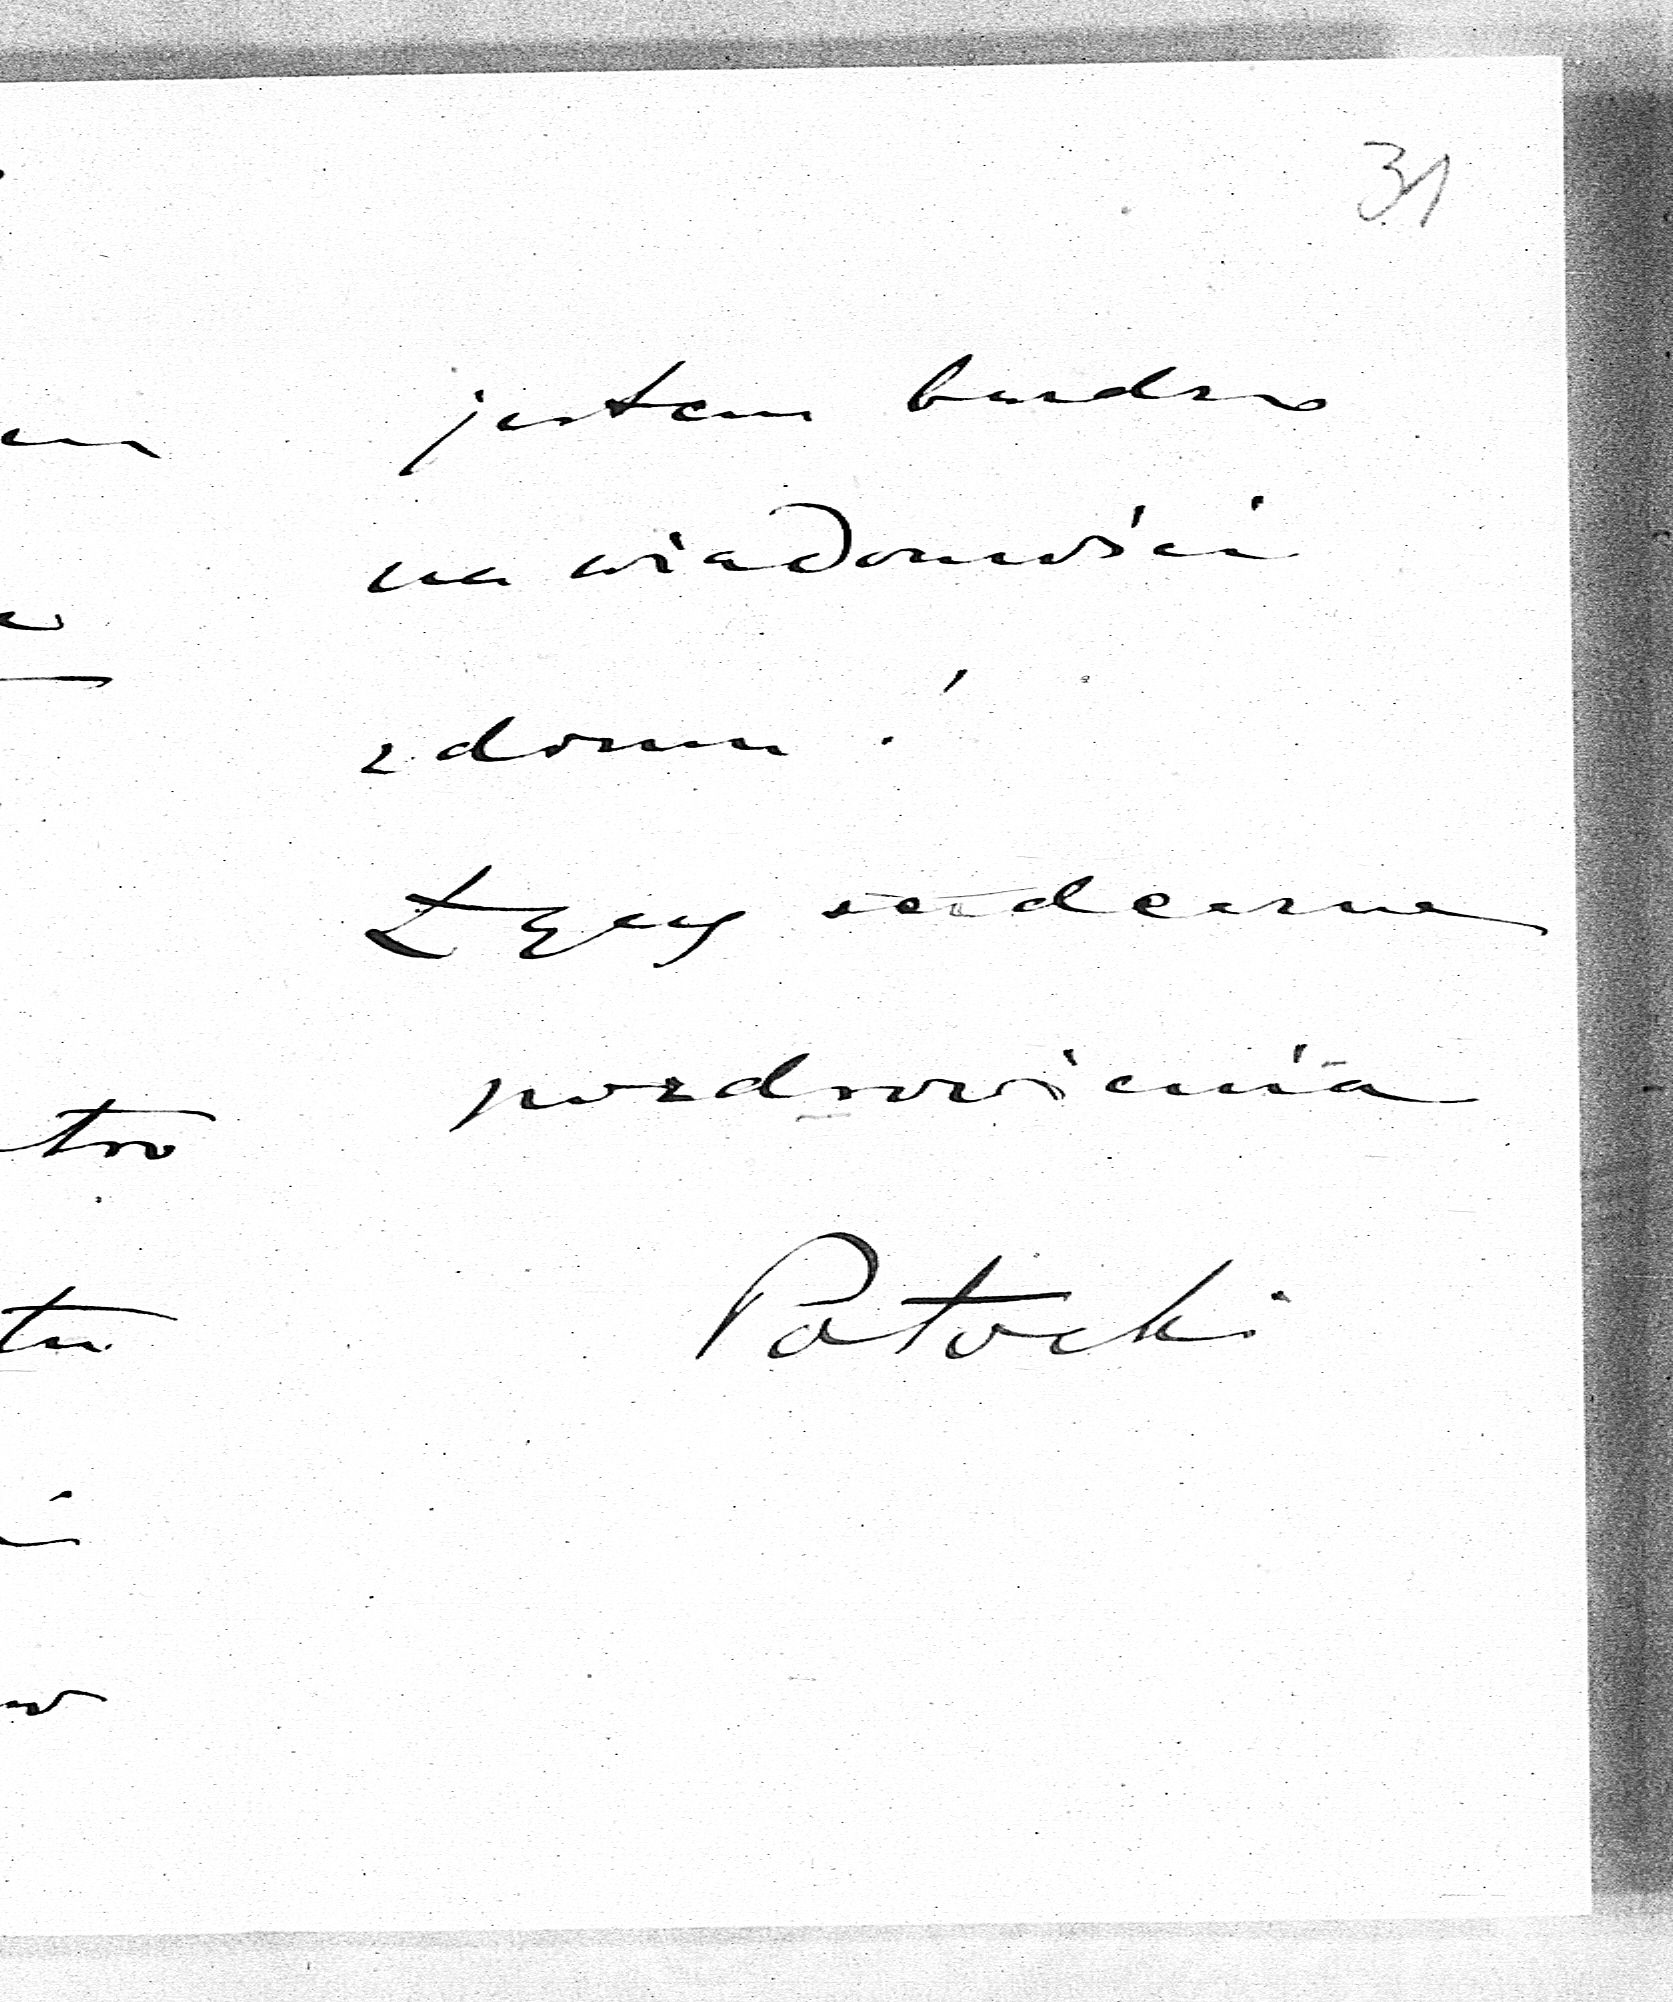 31
jestem bardzo
na wiadomości
z domu!
Łączę serdeczne
pozdrowienia
Potocki